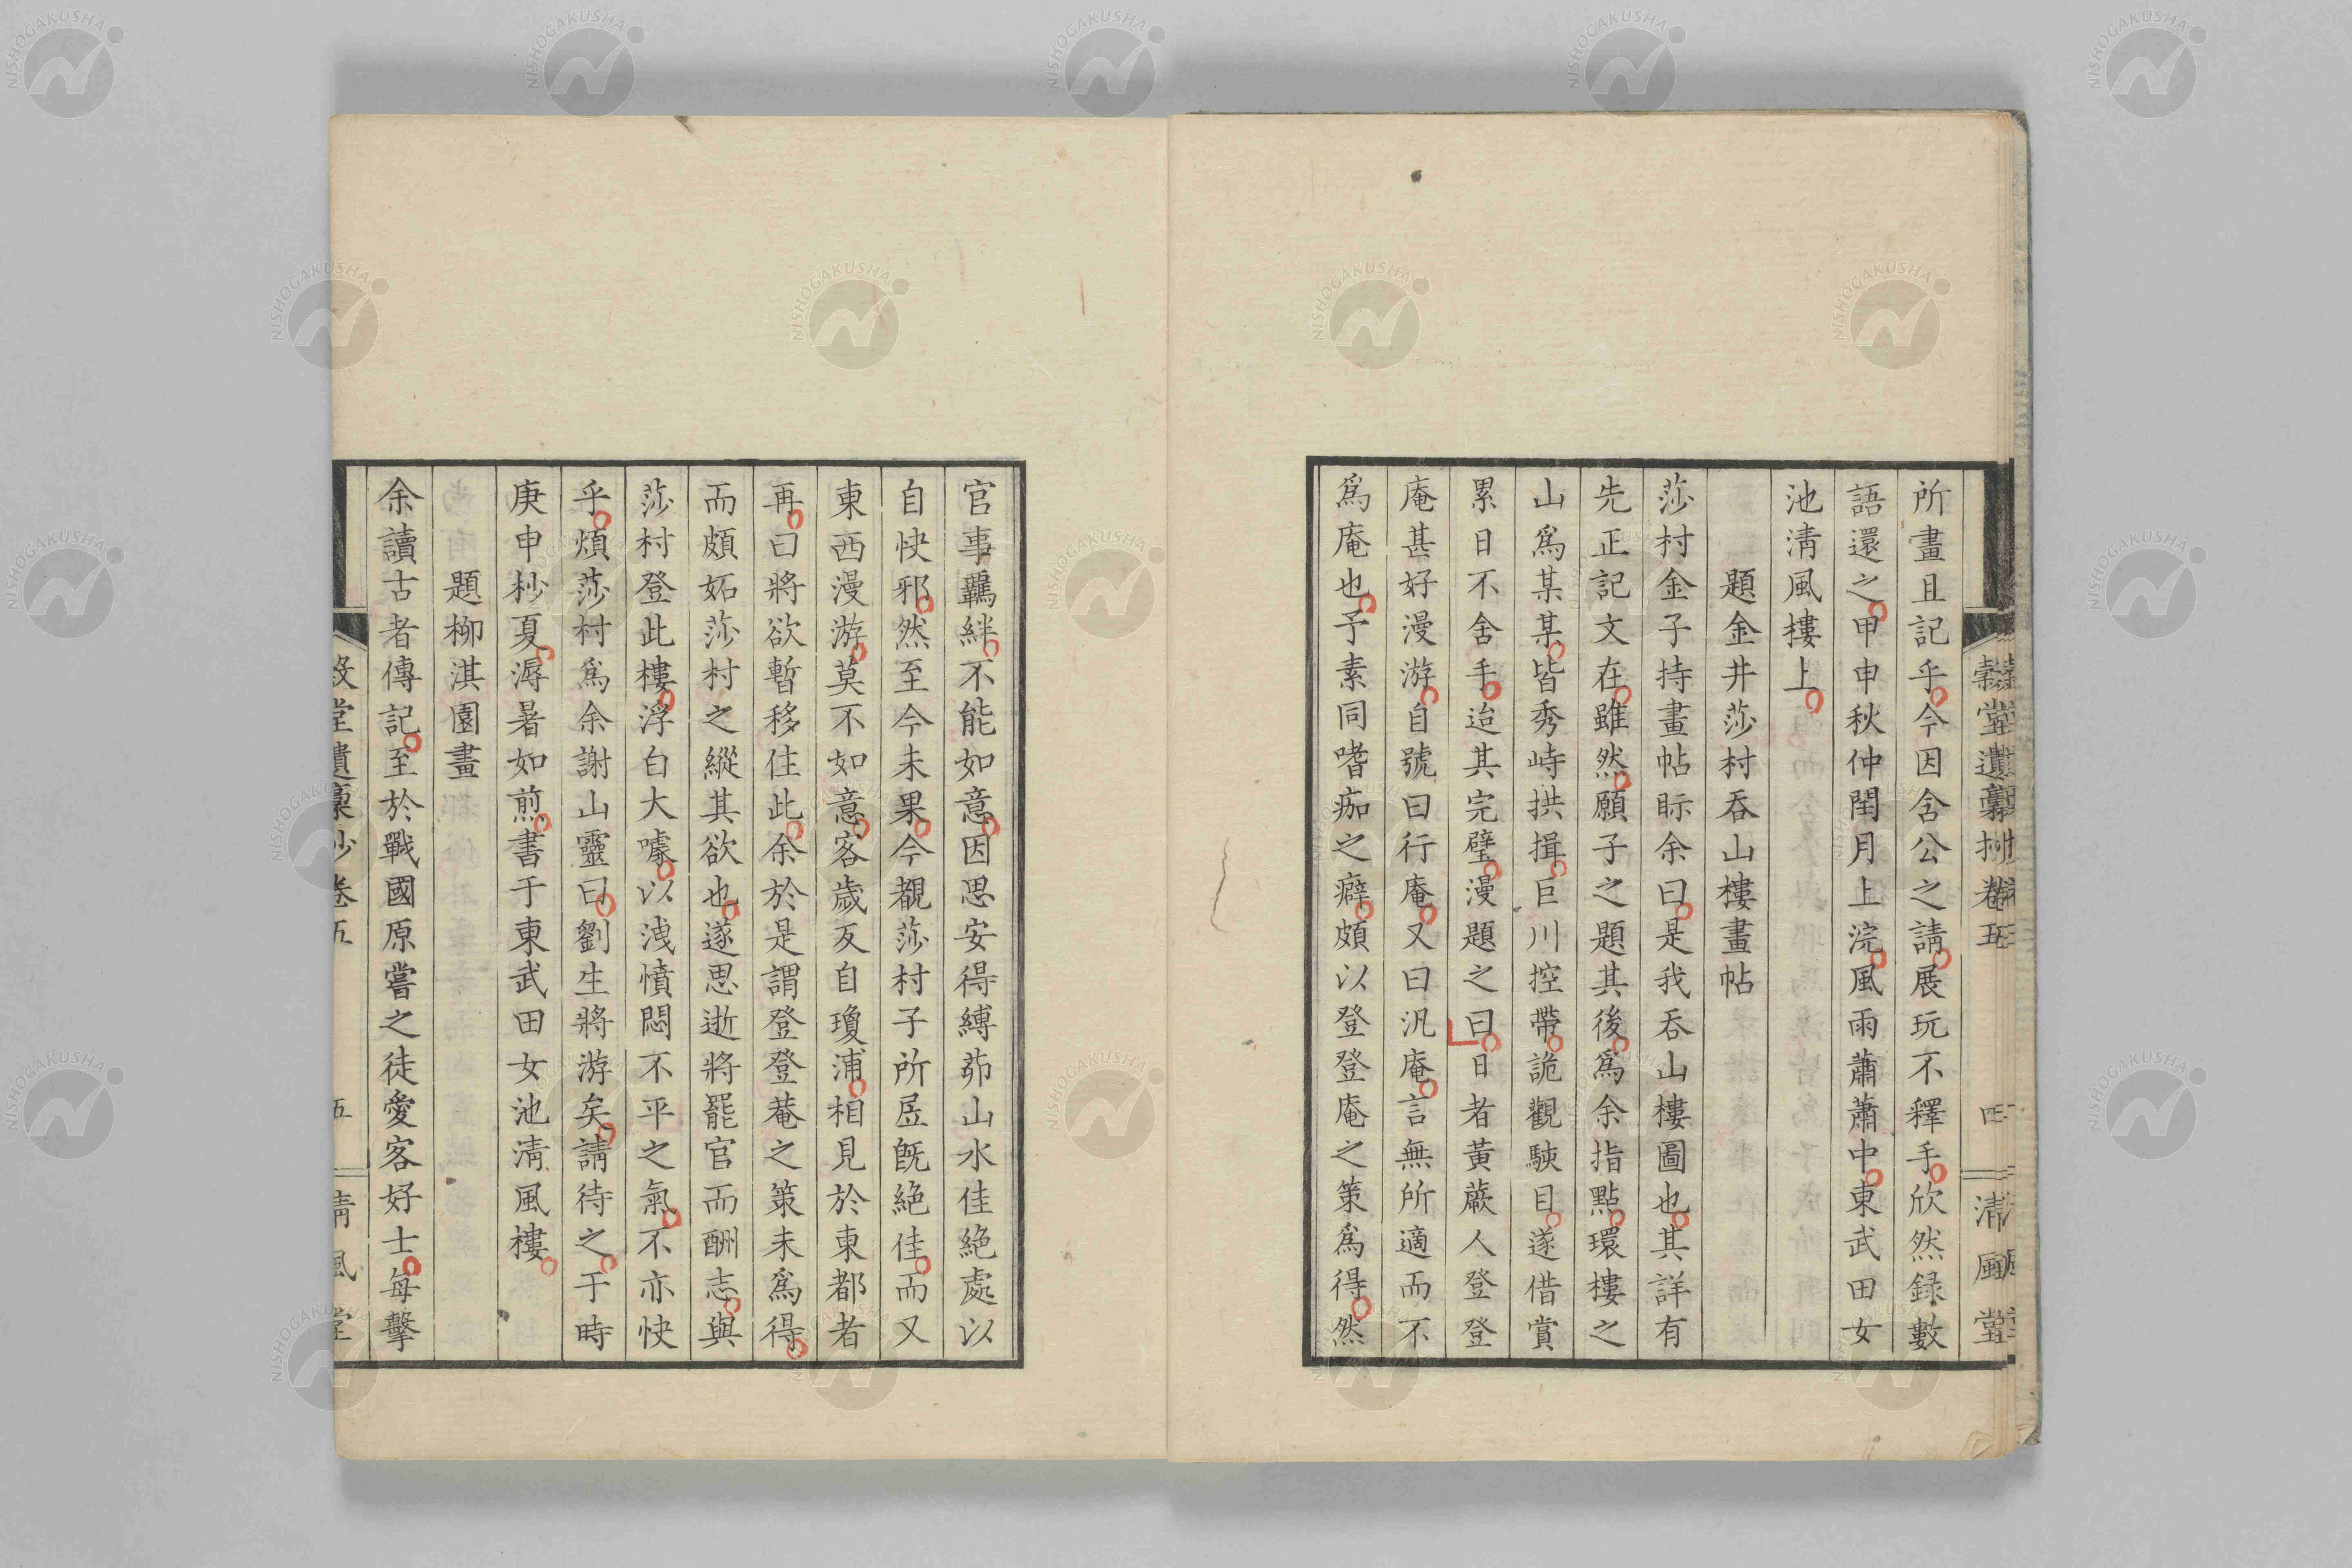 穀堂遺稾抄卷五 四 淸風堂
所畫且記乎今因含公之請展玩不釋手欣然録數
語還之甲申秋仲閏月上浣風雨蕭蕭中東武田女
池淸風樓上
題金井莎村吞山樓畫帖
莎村金子持畫帖眎余曰是我吞山樓圖也其詳有
先正記文在雖然願子之題其後爲余指點環樓之
山爲某某皆秀峙拱揖巨川控帶詭觀駛目遂借賞
累日不舍手迨其完璧漫題之曰日者黃蕨人登登
庵甚好漫游自號曰行庵又曰汎庵言無所適而不
爲庵也予素同嗜痂之癖頗以登登庵之策爲得然
官事羈絆不能如意因思安得縛茆山水佳絶處以
自快邪然至今未果今覩莎村子所居旣絶佳而又
東西漫游莫不如意客歲反自瓊浦相見於東都者
再曰將欲暫移住此余於是謂登登菴之策未爲得
而頗妬莎村之縱其欲也遂思逝將罷官而酬志與
莎村登此樓浮白大噱以洩憤悶不平之氣不亦快
乎煩莎村爲余謝山靈曰劉生將游矣請待之于時
庚申杪夏溽暑如煎書于東武田女池淸風樓
題柳淇園畫
余讀古者傳記至於戰國原嘗之徒愛客好士每擊
堂遺稾抄卷五 五 淸風堂